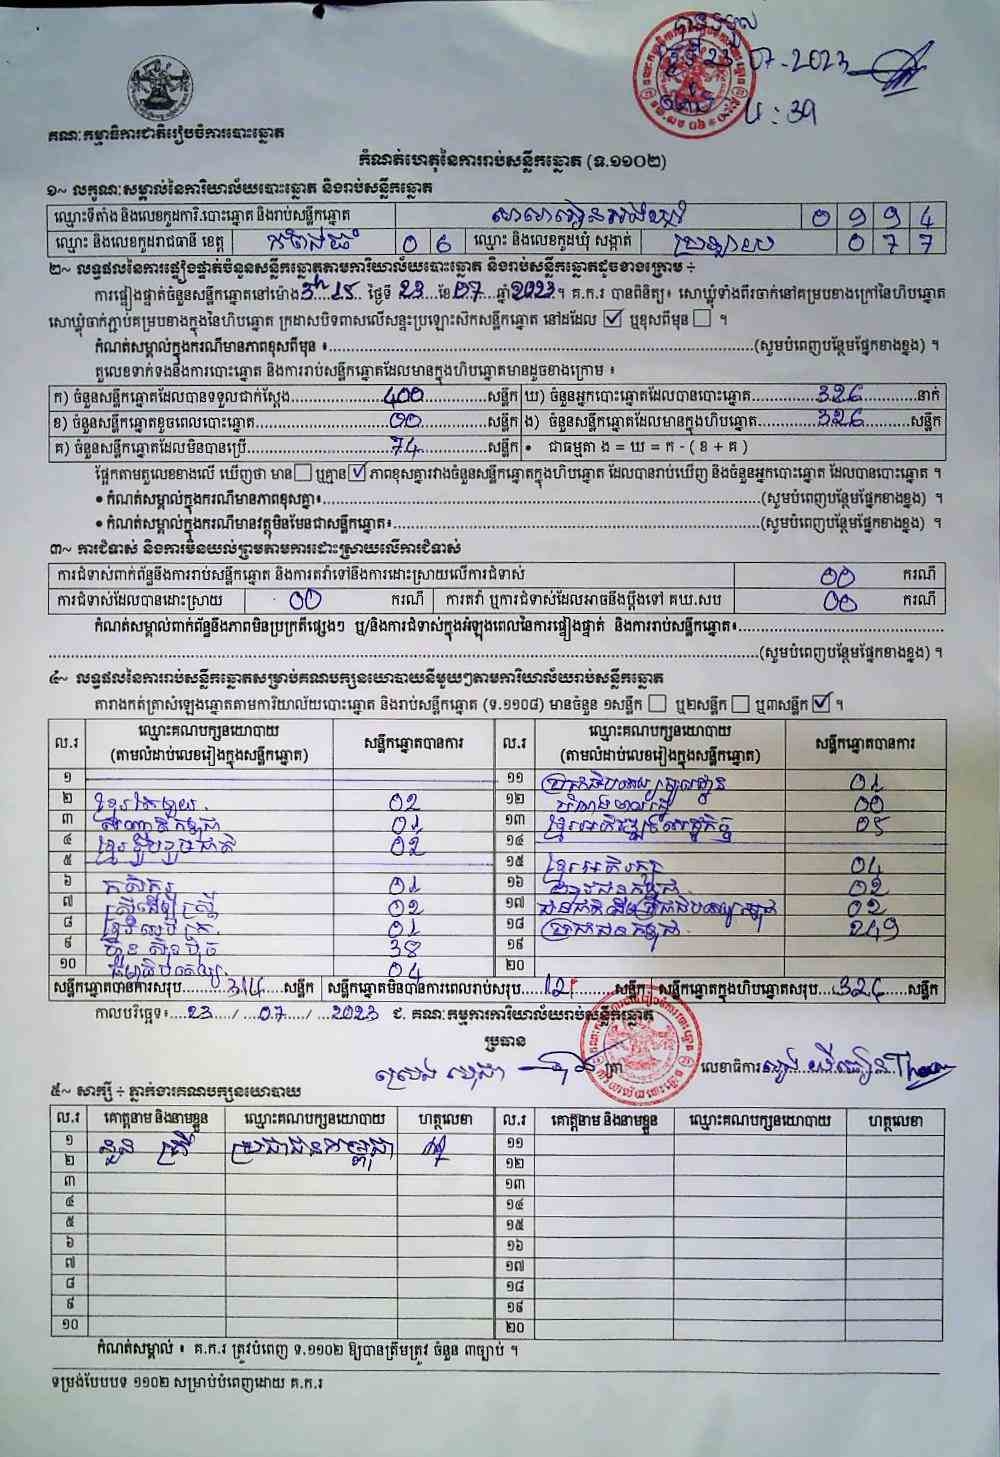 ថ្ងៃទី 23 07-2023
4:39
គណៈកម្មាធិការជាតិរៀបចំការបោះឆ្នោត
កំណត់ហេតុនៃការរាប់សន្លឹកឆ្នោត (ទ.១១០២)
១~ លក្ខណៈសម្គាល់នៃការិយាល័យបោះឆ្នោត និងរាប់សន្លឹកឆ្នោត
ឈ្មោះទីតាំង និងលេខកូដការិ.បោះឆ្នោត និងរាប់សន្លឹកឆ្នោត 0 9 9 4
ឈ្មោះ និងលេខកូដរាជធានី ខេត្ត កំពង់ធំ 0 6 ឈ្មោះ និងលេខកូដឃុំ សង្កាត់ ប្រឡាយ 0 7 7
២~ លទ្ធផលនៃការផ្ទៀងផ្ទាត់ចំនួនសន្លឹកឆ្នោតតាមការិយាល័យបោះឆ្នោត និងរាប់សន្លឹកឆ្នោតដូចខាងក្រោម ÷
ការផ្ទៀងផ្ទាត់ចំនួនសន្លឹកឆ្នោតនៅម៉ោង 3h 15 ថ្ងៃទី 23 ខែ 07 ឆ្នាំ 2023 ។ គ.ក.រ បានពិនិត្យ៖ សោឃ្លុំទាំងពីរចាក់នៅគម្របខាងក្រៅនៃហិបឆ្នោត
សោឃ្លុំចាក់ភ្ជាប់គម្របខាងក្នុងនៃហិបឆ្នោត ក្រដាសបិទពាសលើសន្ទះប្រឡោះសឹកសន្លឹកឆ្នោត នៅដដែល ☑ ឬខុសពីមុន ☐ ។
កំណត់សម្គាល់ក្នុងករណីមានភាពខុសពីមុន ៖ (សូមបំពេញបន្ថែមផ្នែកខាងខ្នង) ។
តួលេខទាក់ទងនឹងការបោះឆ្នោត និងការរាប់សន្លឹកឆ្នោតដែលមានក្នុងហិបឆ្នោតមានដូចខាងក្រោម ៖
ក) ចំនួនសន្លឹកឆ្នោតដែលបានទទួលជាក់ស្តែង 400 សន្លឹក ឃ) ចំនួនអ្នកបោះឆ្នោតដែលបានបោះឆ្នោត 326 នាក់
ខ) ចំនួនសន្លឹកឆ្នោតខូចពេលបោះឆ្នោត 00 សន្លឹក ង) ចំនួនសន្លឹកឆ្នោតដែលមានក្នុងហិបឆ្នោត 326 សន្លឹក
គ) ចំនួនសន្លឹកឆ្នោតដែលមិនបានប្រើ 74 សន្លឹក • ជាធម្មតា ង = ឃ = ក - ( ខ + គ )
ផ្អែកតាមតួលេខខាងលើ ឃើញថា មាន ☐ ឬគ្មាន ☑ ភាពខុសគ្នារវាងចំនួនសន្លឹកឆ្នោតក្នុងហិបឆ្នោត ដែលបានរាប់ឃើញ និងចំនួនអ្នកបោះឆ្នោត ដែលបានបោះឆ្នោត ។
• កំណត់សម្គាល់ក្នុងករណីមានភាពខុសគ្នា៖ (សូមបំពេញបន្ថែមផ្នែកខាងខ្នង) ។
• កំណត់សម្គាល់ក្នុងករណីមានវត្ថុមិនមែនជាសន្លឹកឆ្នោត៖ (សូមបំពេញបន្ថែមផ្នែកខាងខ្នង) ។
៣~ ការជំទាស់ និងការមិនយល់ព្រមតាមការដោះស្រាយលើការជំទាស់
ការជំទាស់ពាក់ព័ន្ធនឹងការរាប់សន្លឹកឆ្នោត និងការតវ៉ាទៅនឹងការដោះស្រាយលើការជំទាស់ 00 ករណី
ការជំទាស់ដែលបានដោះស្រាយ 00 ករណី ការតវ៉ា ឬការជំទាស់ដែលអាចនឹងប្តឹងទៅ គឃ.សប 00 ករណី
កំណត់សម្គាល់ពាក់ព័ន្ធនឹងភាពមិនប្រក្រតីផ្សេងៗ ឬ/និងការជំទាស់ក្នុងអំឡុងពេលនៃការផ្ទៀងផ្ទាត់ និងការរាប់សន្លឹកឆ្នោត៖
(សូមបំពេញបន្ថែមផ្នែកខាងខ្នង) ។
៤~ លទ្ធផលនៃការរាប់សន្លឹកឆ្នោតសម្រាប់គណបក្សនយោបាយនីមួយៗតាមការិយាល័យរាប់សន្លឹកឆ្នោត
តារាងកត់ត្រាសំឡេងឆ្នោតតាមការិយាល័យបោះឆ្នោត និងរាប់សន្លឹកឆ្នោត (ទ.១១០៨) មានចំនួន ១សន្លឹក ☐ ឬ២សន្លឹក ☐ ឬ៣សន្លឹក ☑ ។
ល.រ ឈ្មោះគណបក្សនយោបាយ (តាមលំដាប់លេខរៀងក្នុងសន្លឹកឆ្នោត) សន្លឹកឆ្នោតបានការ ល.រ ឈ្មោះគណបក្សនយោបាយ (តាមលំដាប់លេខរៀងក្នុងសន្លឹកឆ្នោត) សន្លឹកឆ្នោតបានការ
១ ១១ ប្រជាធិបតេយ្យមូលដ្ឋាន 01
២ ខ្មែរតែមួយ 02 ១២ 00
៣ សញ្ជាតិកម្ពុជា 01 ១៣ ខ្មែរអភិវឌ្ឍន៍សេដ្ឋកិច្ច 05
៤ ខ្មែររួបរួមជាតិ 02 ១៤
៥ ១៥ ខ្មែរអភិរក្ស 04
៦ កសិករ 01 ១៦ យុវជនកម្ពុជា 02
៧ ស្ត្រីដើម្បីស្ត្រី 02 ១៧ 02
៨ 01 ១៨ ប្រជាជនកម្ពុជា 249
៩ ហ៊្វុនស៊ិនប៉ិច 38 ១៩
១០ ធម្មាធិបតេយ្យ 04 ២០
សន្លឹកឆ្នោតបានការសរុប 314 សន្លឹក សន្លឹកឆ្នោតមិនបានការពេលរាប់សរុប 12 សន្លឹក សន្លឹកឆ្នោតក្នុងហិបឆ្នោតសរុប 326 សន្លឹក
កាលបរិច្ឆេទ៖ 23 / 07 / 2023 ជ. គណៈកម្មការការិយាល័យរាប់សន្លឹកឆ្នោត
ប្រធាន
ត្រា លេខាធិការ
៥~ សាក្សី ÷ ភ្នាក់ងារគណបក្សនយោបាយ
ល.រ គោត្តនាម និងនាមខ្លួន ឈ្មោះគណបក្សនយោបាយ ហត្ថលេខា ល.រ គោត្តនាម និងនាមខ្លួន ឈ្មោះគណបក្សនយោបាយ ហត្ថលេខា
១ នួន ស្រី ប្រជាជនកម្ពុជា ១១
២ ១២
៣ ១៣
៤ ១៤
៥ ១៥
៦ ១៦
៧ ១៧
៨ ១៨
៩ ១៩
១០ ២០
កំណត់សម្គាល់ ៖ គ.ក.រ ត្រូវបំពេញ ទ.១១០២ ឱ្យបានត្រឹមត្រូវ ចំនួន ៣ច្បាប់ ។
ទម្រង់បែបបទ ១១០២ សម្រាប់បំពេញដោយ គ.ក.រ